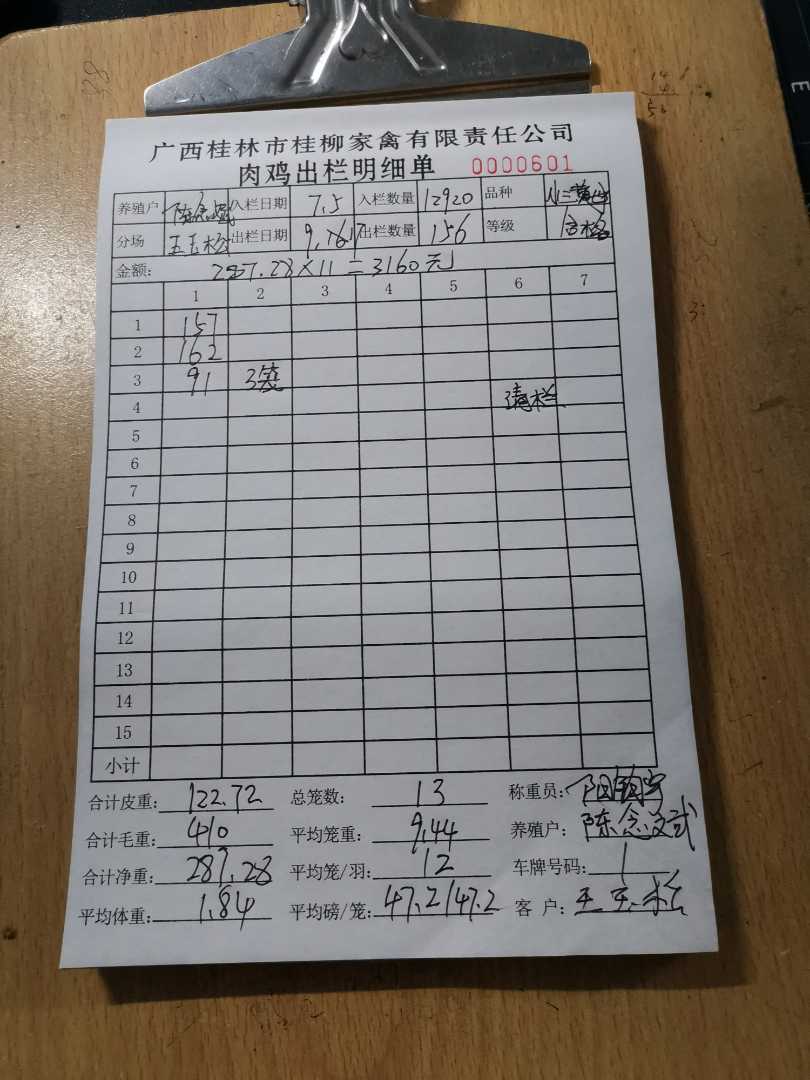 广西桂林市桂柳家禽有限责任公司
肉鸡出栏明细单 0000601
养殖户 入栏日期 7.5 入栏数量 12920 品种
分场 王玉松 出栏日期 9.16 出栏数量 156 等级 合格
金额: 287.28×11=3160元
1 2 3 4 5 6 7
1 157
2 162
3 91 3笼
4 清栏
5
6
7
8
9
10
11
12
13
14
15
小计
合计皮重: 122.72 总笼数: 13 称重员:
合计毛重: 410 平均笼重: 9.44 养殖户: 陈念文武
合计净重: 287.28 平均笼/羽: 12 车牌号码: 1
平均体重: 1.84 平均磅/笼: 47.2/47.2 客 户: 王玉松